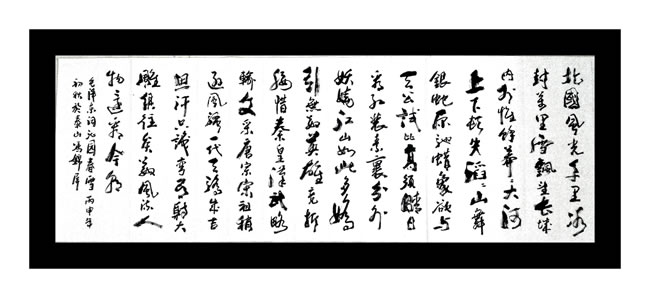 北國風光千里冰
封萬里雪飄望長城
内外惟餘莽莽大河
上下頓失滔滔山舞
銀蛇原馳蠟象欲与
天公試比高須晴日
看紅裝素裹分外
妖嬈江山如此多嬌
引無數英雄競折
腰惜秦皇漢武略
輸文采唐宗宋祖稍
遜風騷一代天驕成吉
思汗只識彎弓射大
雕俱往矣數風流人
物還看今朝
毛澤東詞沁園春雪 丙申年
初秋於泰山馮錦